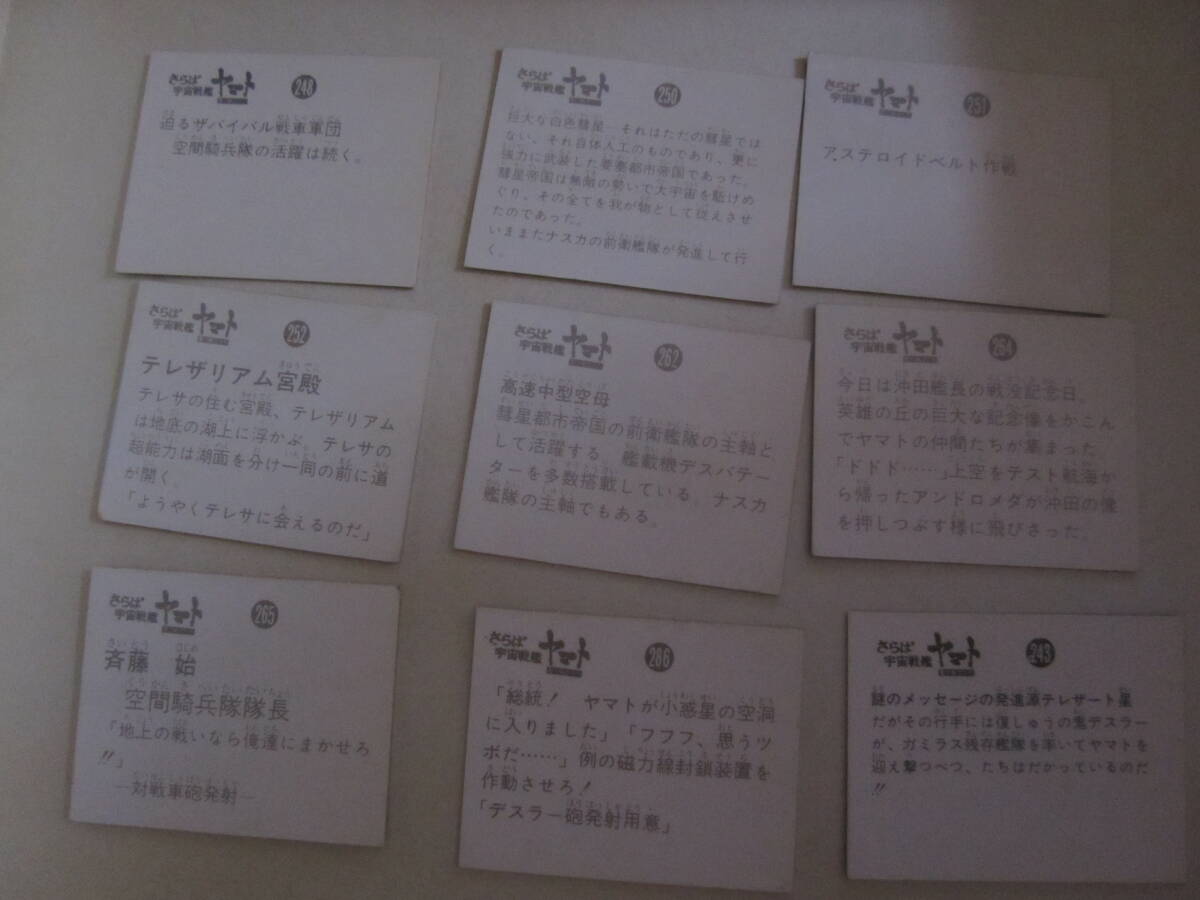 さらば
宇宙戦艦 ヤマト 248
迫るザバイバル戦車軍団
空間騎兵隊の活躍は続く。
さらば
宇宙戦艦 ヤマト 250
巨大な白色彗星―それはただの彗星では
ない、それ自体人工のものであり、更に
強力に武装した要塞都市帝国であった。
彗星帝国は無敵の勢いで大宇宙を駈けめ
ぐり、その全てを我が物として従えさせ
たのであった。
いままたナスカの前衛艦隊が発進して行
く。
さらば
宇宙戦艦 ヤマト 251
アステロイドベルト作戦
さらば
宇宙戦艦 ヤマト 252
テレザリアム宮殿
テレサの住む宮殿、テレザリアム
は地底の湖上に浮かぶ。テレサの
超能力は湖面を分け一同の前に道
が開く。
「ようやくテレサに会えるのだ」
さらば
宇宙戦艦 ヤマト 262
高速中型空母
彗星都市帝国の前衛艦隊の主軸と
して活躍する。艦載機デスバテー
ターを多数搭載している。ナスカ
艦隊の主軸でもある。
さらば
宇宙戦艦 ヤマト 264
今日は沖田艦長の戦没記念日。
英雄の丘の巨大な記念像をかこん
でヤマトの仲間たちが集まった。
「ドドド……」上空をテスト航海か
ら帰ったアンドロメダが沖田の像
を押しつぶす様に飛びさった。
さらば
宇宙戦艦 ヤマト 265
斉藤 始
空間騎兵隊隊長
「地上の戦いなら俺達にまかせろ
!!」
―対戦車砲発射―
さらば
宇宙戦艦 ヤマト 286
「総統! ヤマトが小惑星の空洞
に入りました」「フフフ、思うツ
ボだ……」例の磁力線封鎖装置を
作動させろ!
「デスラー砲発射用意」
さらば
宇宙戦艦 ヤマト 243
謎のメッセージの発進源テレザート星
だがその行手には復しゅうの鬼デスラー
が、ガミラス残存艦隊を率いてヤマトを
迎え撃つべつ、たちはだかっているのだ
!!